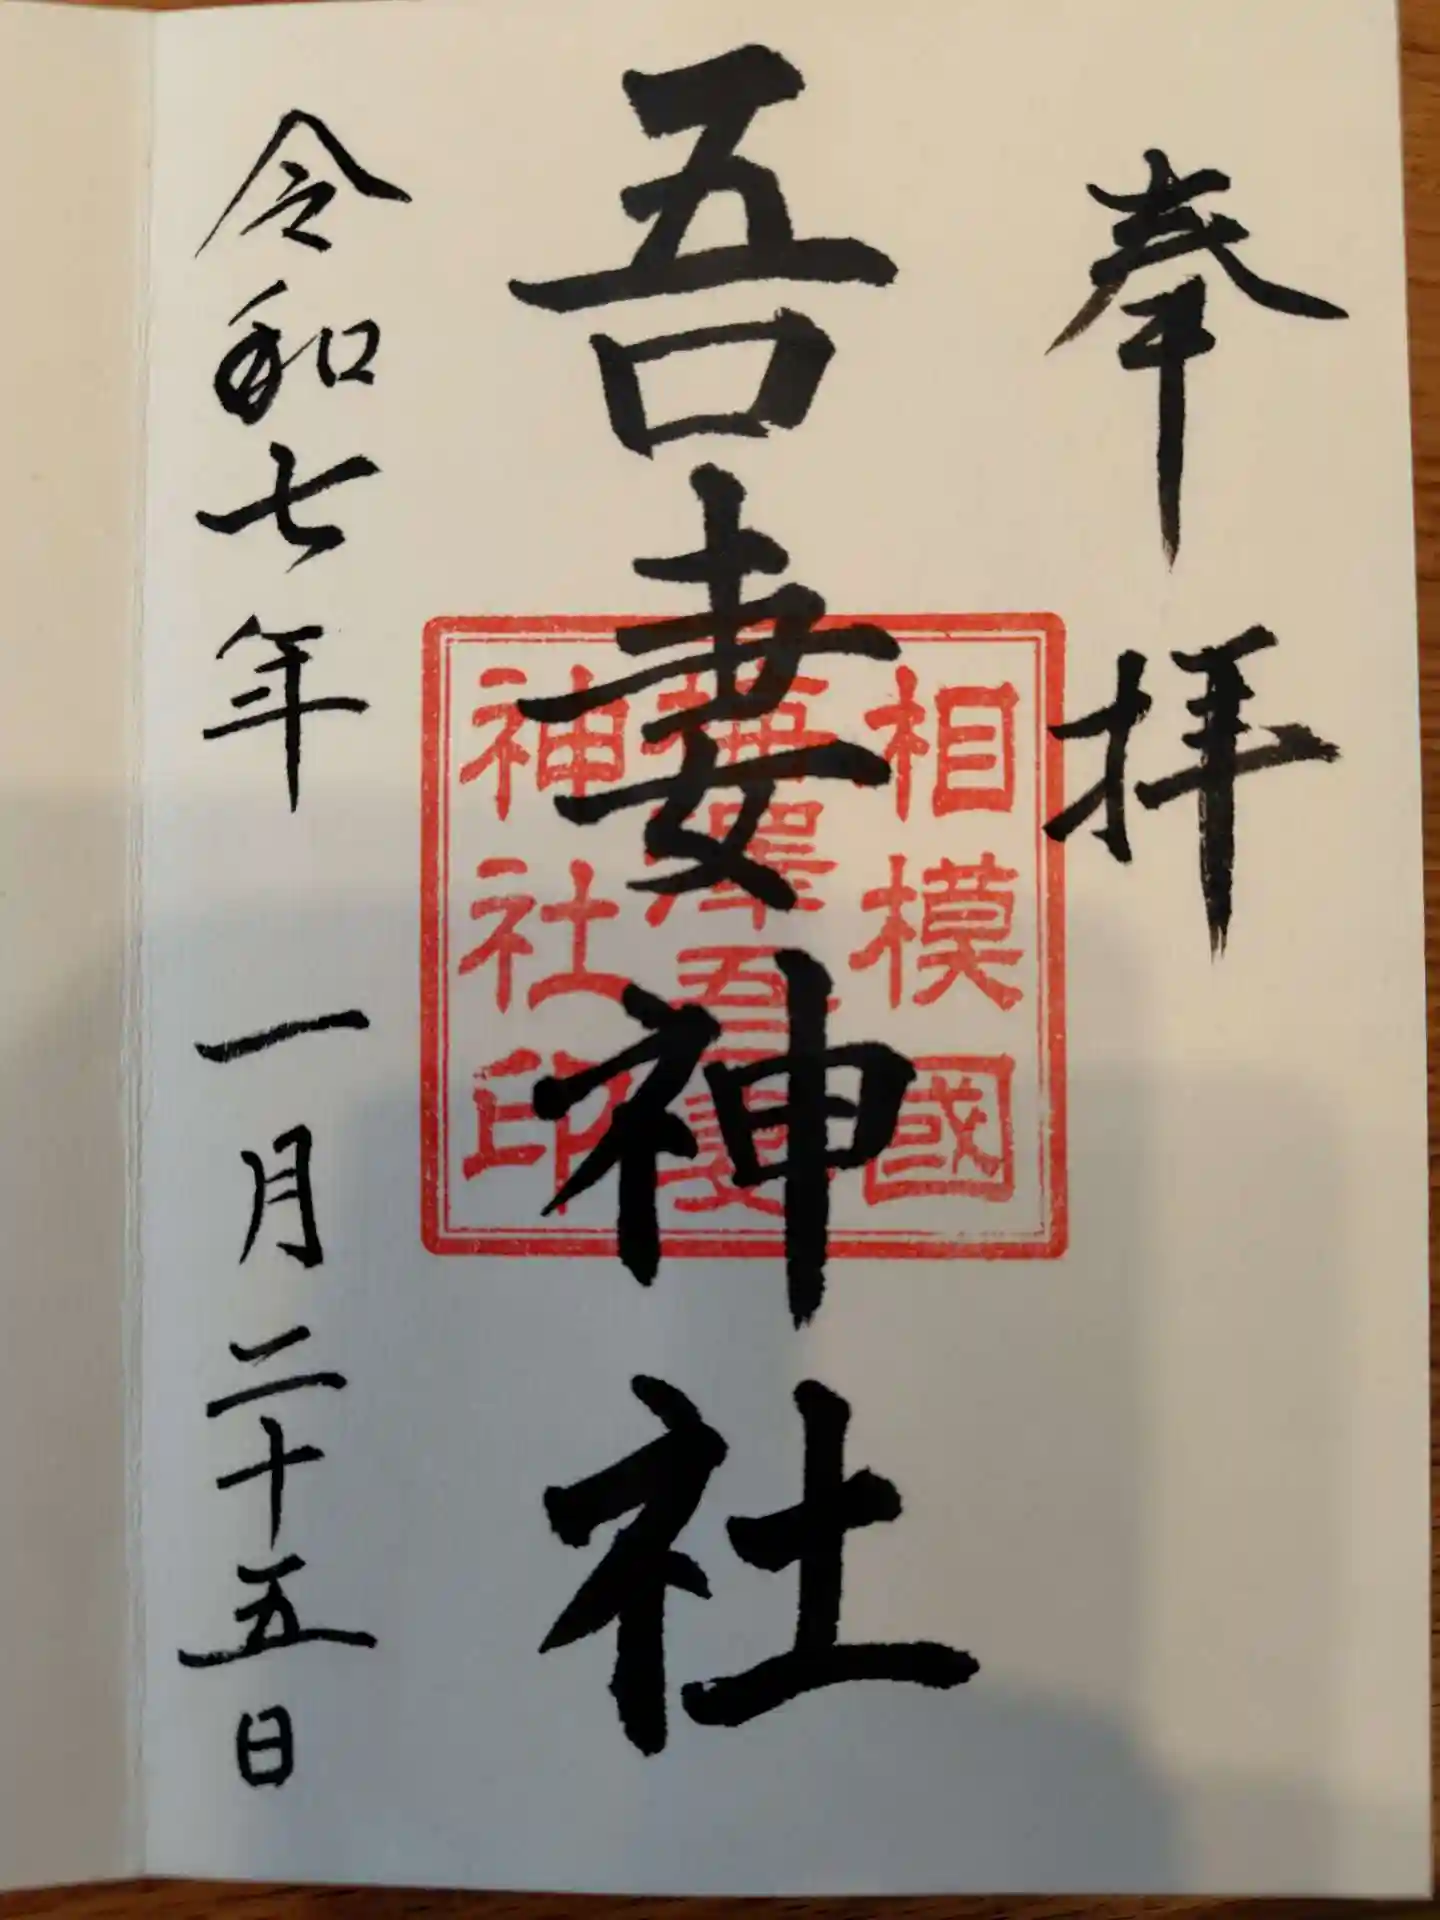 奉拝
吾妻神社
相模國
梅澤吾妻
神社印
令和七年 一月二十五日